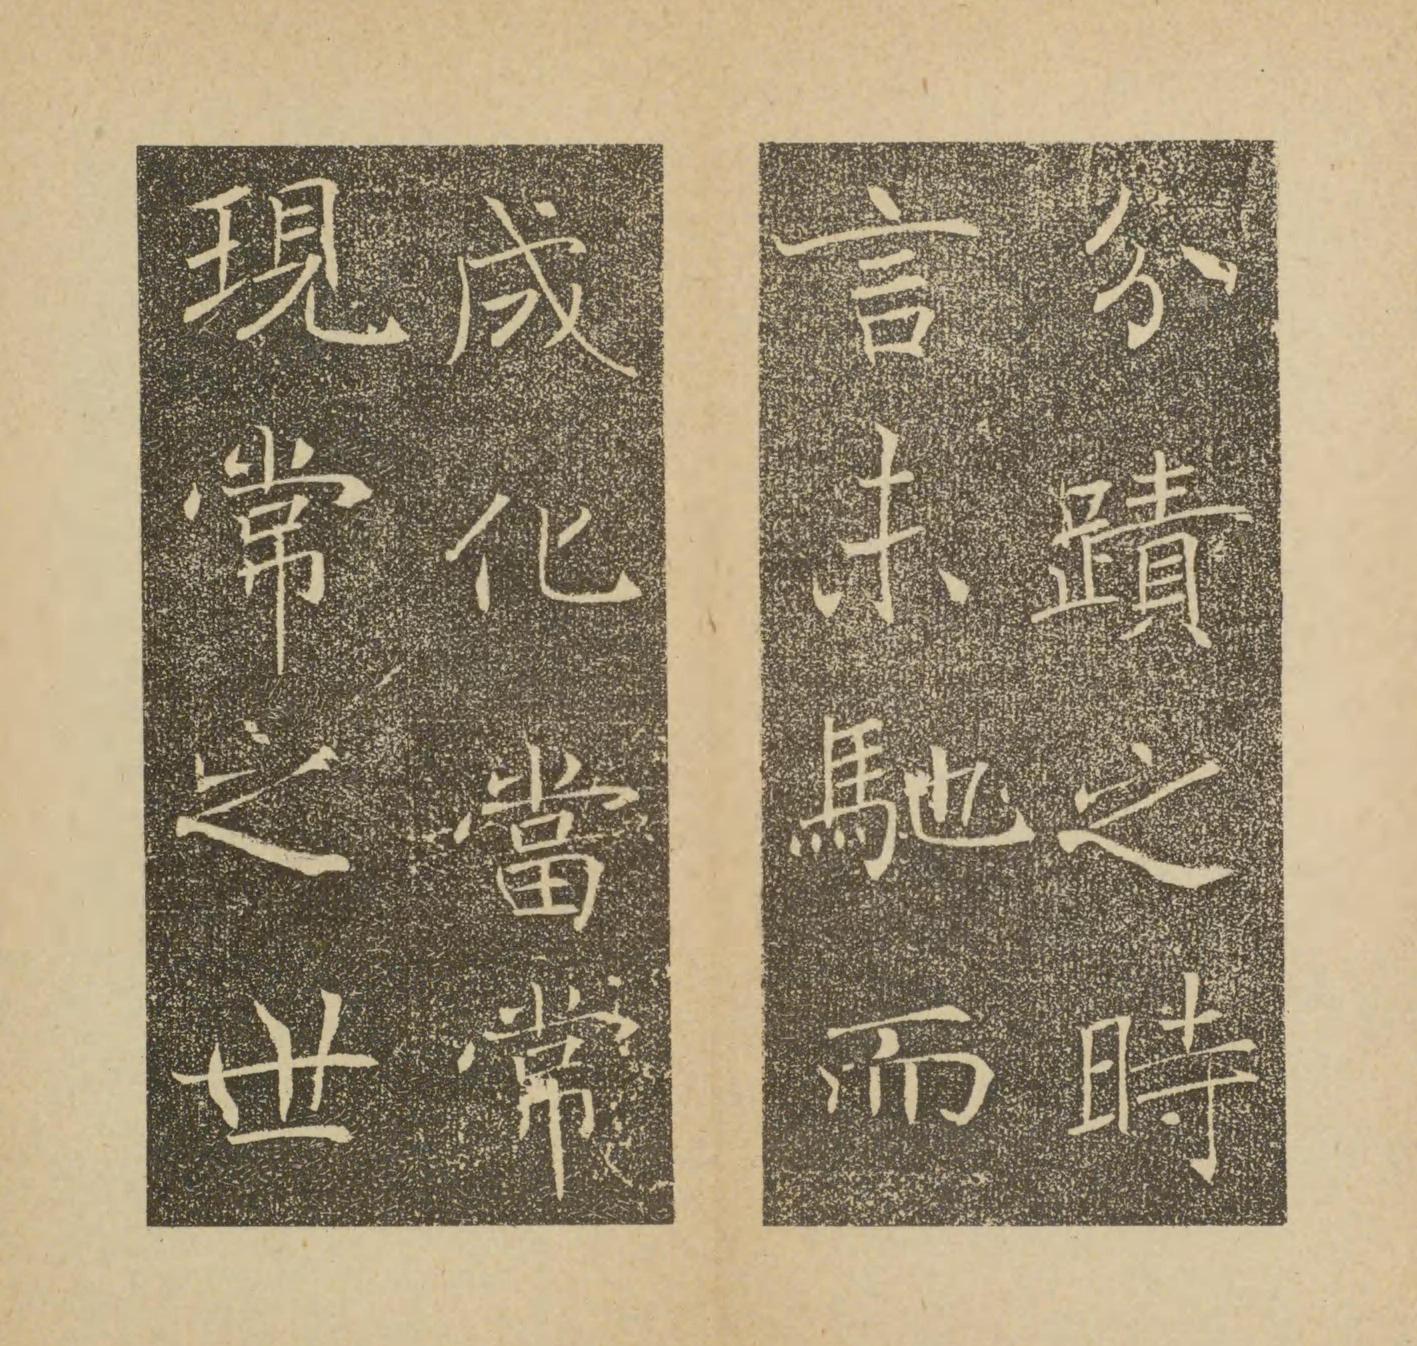 分蹟之時
言未馳而
成化當常
現常之世